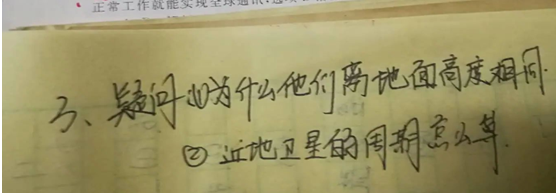 正常工作就能实现全球通讯.
3、疑问 ①为什么他们离地面高度相同
② 近地卫星的周期怎么算.